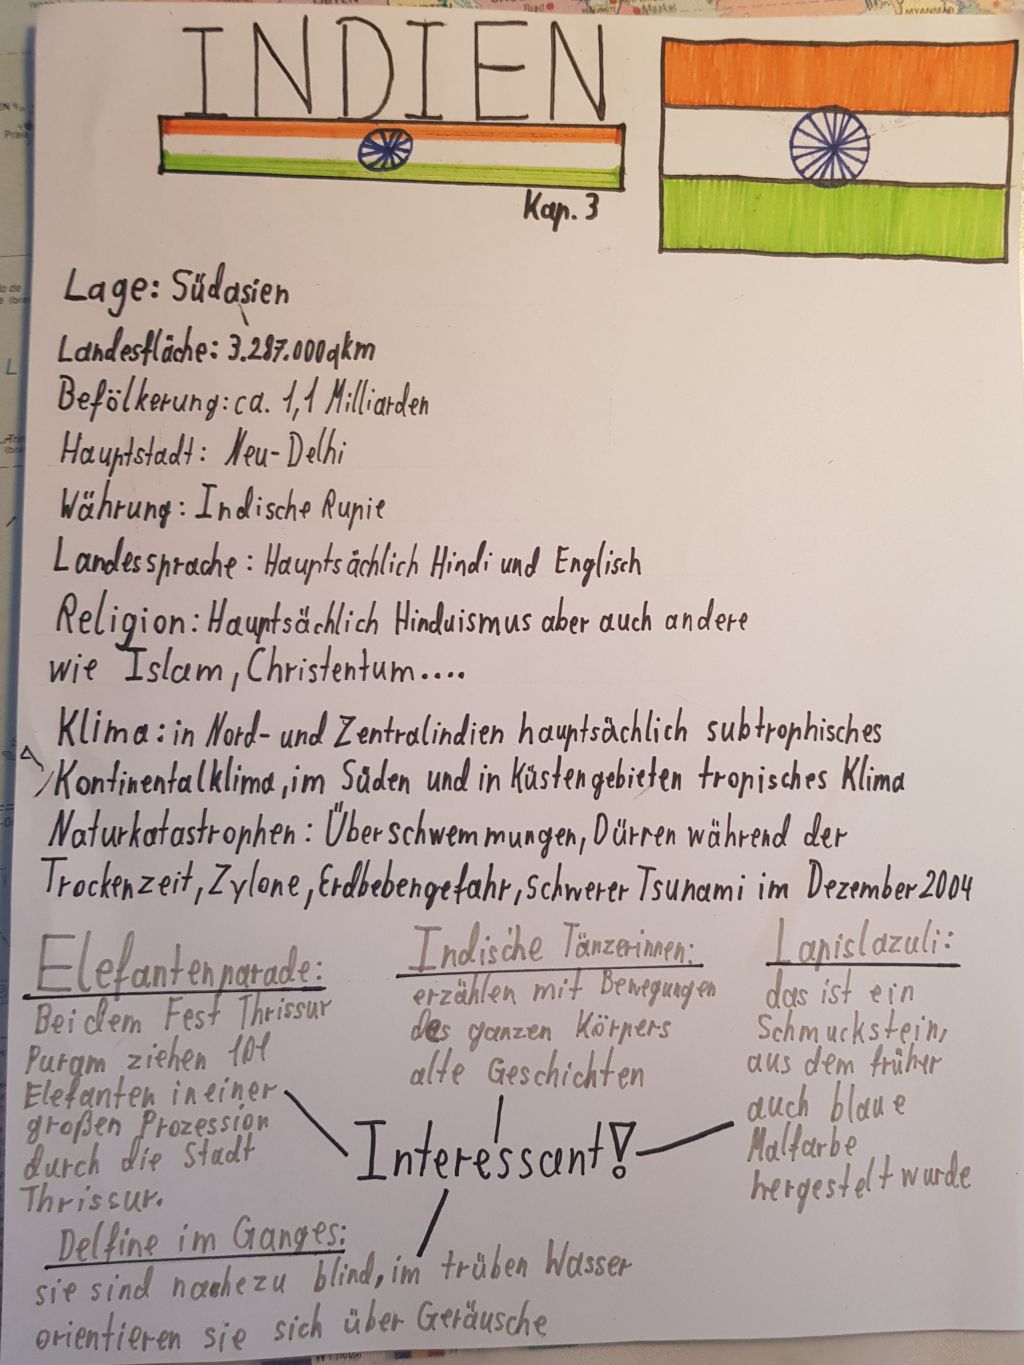 INDIEN
Kap. 3
Lage: Südasien
Landesfläche: 3.287.000qkm
Befölkerung: ca. 1,1 Milliarden
Hauptstadt: Neu-Delhi
Währung: Indische Rupie
Landessprache: Hauptsächlich Hindi und Englisch
Religion: Hauptsächlich Hinduismus aber auch andere
wie Islam, Christentum....
Klima: in Nord- und Zentralindien hauptsächlich subtrophisches
Kontinentalklima, im Süden und in Küstengebieten tropisches Klima
Naturkatastrophen: Überschwemmungen, Dürren während der
Trockenzeit, Zylone, Erdbebengefahr, schwerer Tsunami im Dezember 2004
Elefantenparade:
Bei dem Fest Thrissur
Puram ziehen 101
Elefanten in einer
großen Prozession
durch die Stadt
Thrissur.
Indische Tänzerinnen:
erzählen mit Bewegungen
des ganzen Körpers
alte Geschichten
Lapislazuli:
das ist ein
Schmuckstein,
aus dem früher
auch blaue
Malfarbe
hergestelt wurde
Interessant!
Delfine im Ganges:
sie sind nahezu blind, im trüben Wasser
orientieren sie sich über Geräusche